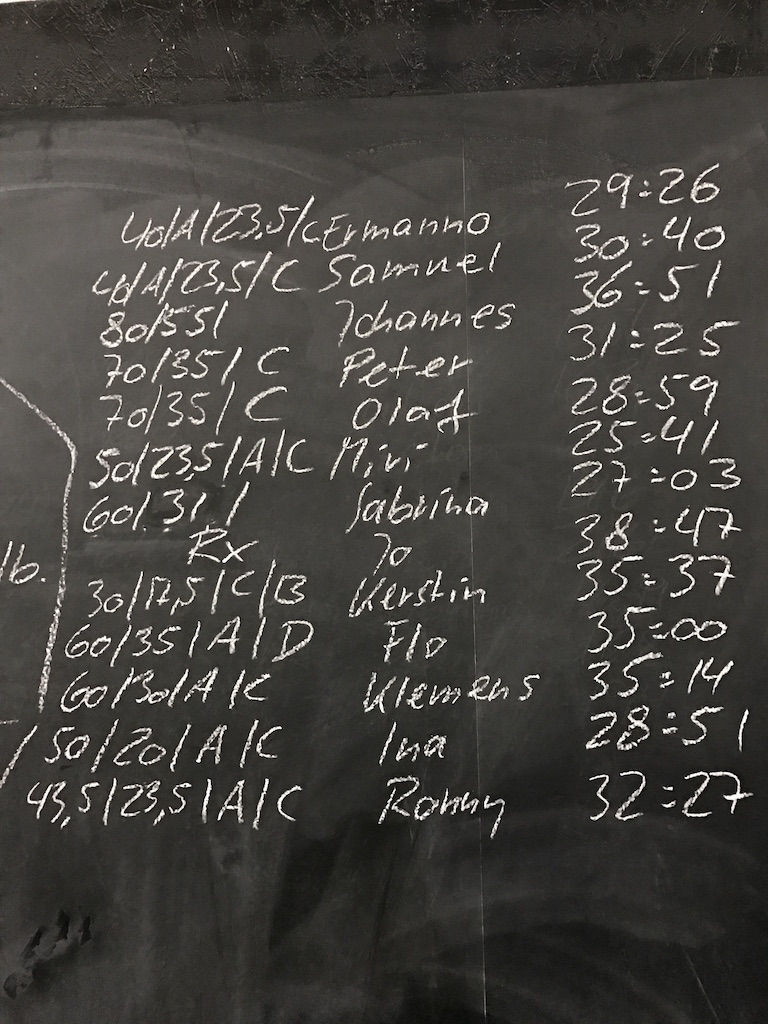 40/A/23,5/C Ermanno 29:26
40/A/23,5/C Samuel 30:40
80/55/ Johannes 36:51
70/35/C Peter 31:25
70/35/C Olaf 28:59
50/23,5/A/C Mivi 25:41
60/31/ Sabrina 27:03
Rx Jo 38:47
lb.
30/17,5/C/B Kerstin 35:37
60/35/A/D Flo 35:00
60/30/A/C Klemens 35:14
/50/20/A/C Ina 28:51
43,5/23,5/A/C Ronny 32:27